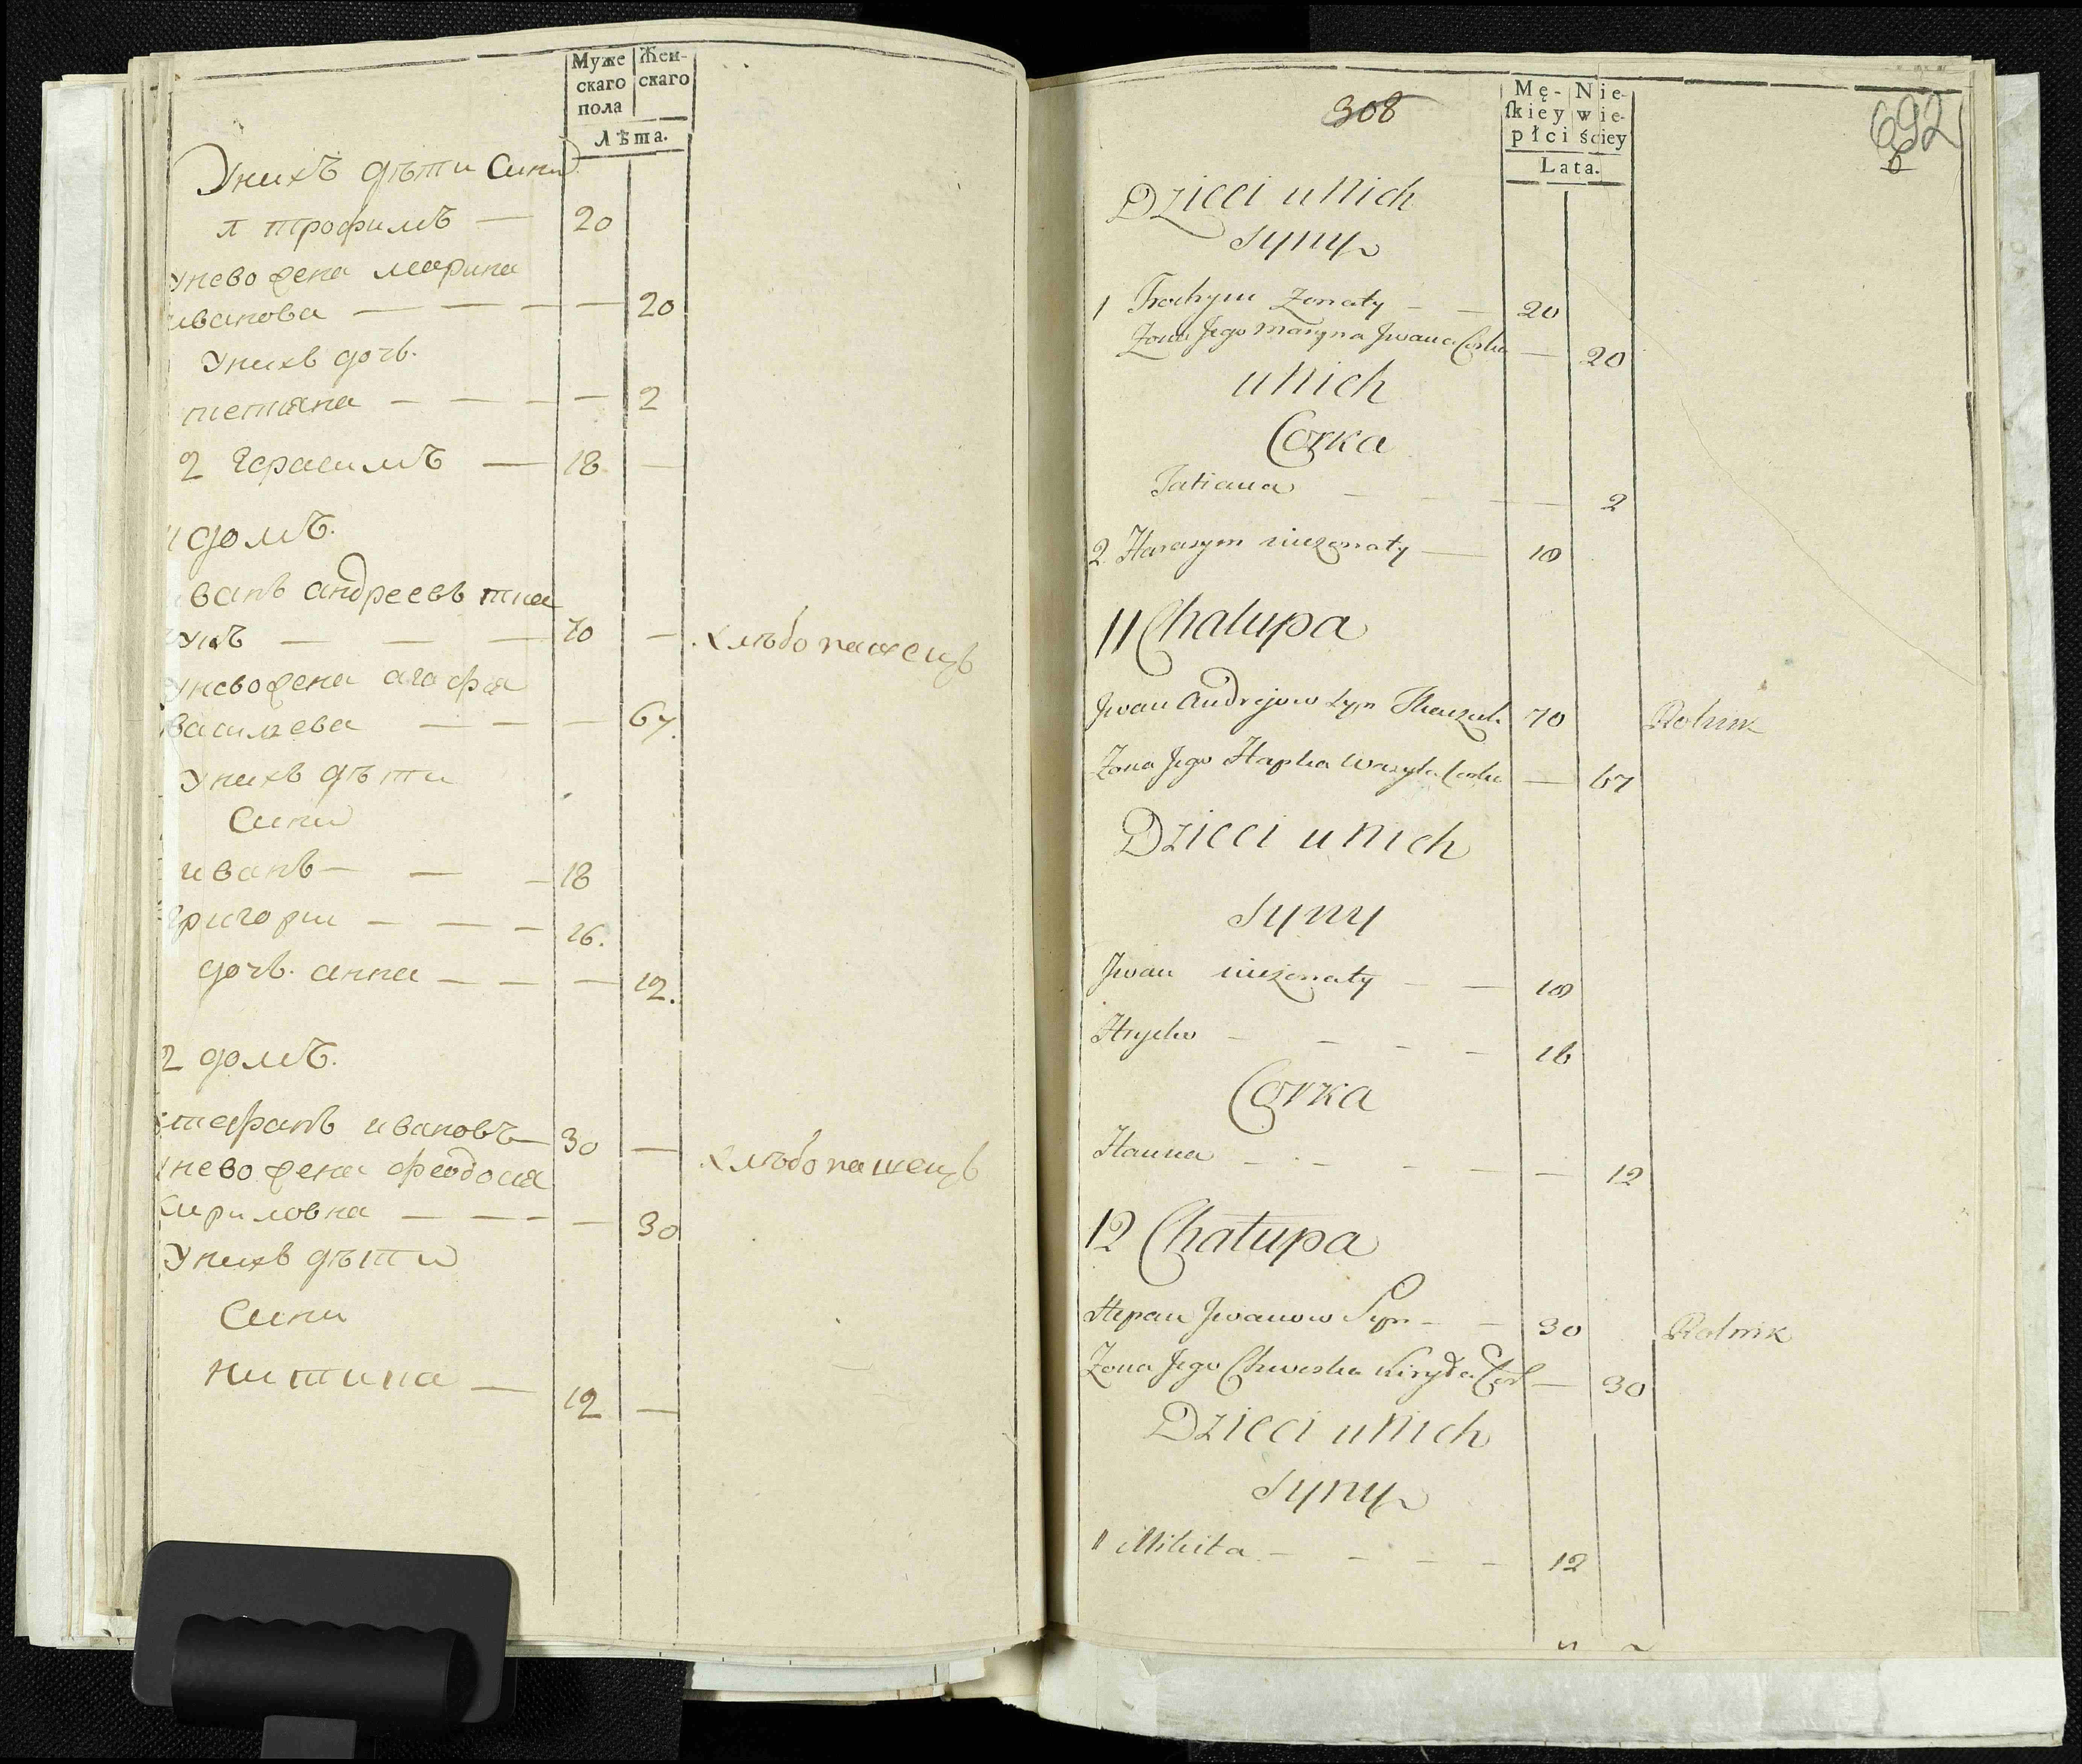 Муже
скаго
пола
Жен-
скаго
Лѣта.
Унихъ дѣти Сини
трофимъ — 20
унево жена марина
иванова — — — — 20
Унихъ дочь.
тетіяна — — — — 2
2 Герасимъ — 18 —
домъ.
иванъ андреевъ тка
— — — 70 — хлѣбопашецъ
унево жена агафія
василева — — — 67.
Унихъ дѣти
Сини
иванъ — — — 18
Григории — — — 16.
дочь. анна — — — 12.
2 домъ.
стефанъ ивановъ — 30 — хлѣбопашецъ
унево жена феодосия
Кириловна — — — — 30
Унихъ дѣти
Сини
никита — 12 —
308
Mę-
skiey
płci
Nie-
wie-
ściey
Lata.
692
Dzieci u Nich
synÿ
1 Trochym Zonaty — — 20
Zona Jego Maryna Jwana Corka — 20
u Nich
Corka
Tatiana — — — — 2
2. Harasym niezonaty — 18
11 Chałupa
Jwan Andrejow Syn 70 Rolnik
Zona Jego Hapka Wasyla Corka — 67
Dzieci u Nich
syny
Jwan niezonaty — — 18
Hryćko — — — — 16
Corka
Hanna — — — — — 12
12 Chałupa
Stepan Jwanow Syn — — 30 Rolnik
Zona Jego Chweska Kiryła Cor — 30
Dzieci u Nich
syny
1 Mikita — — — — 12